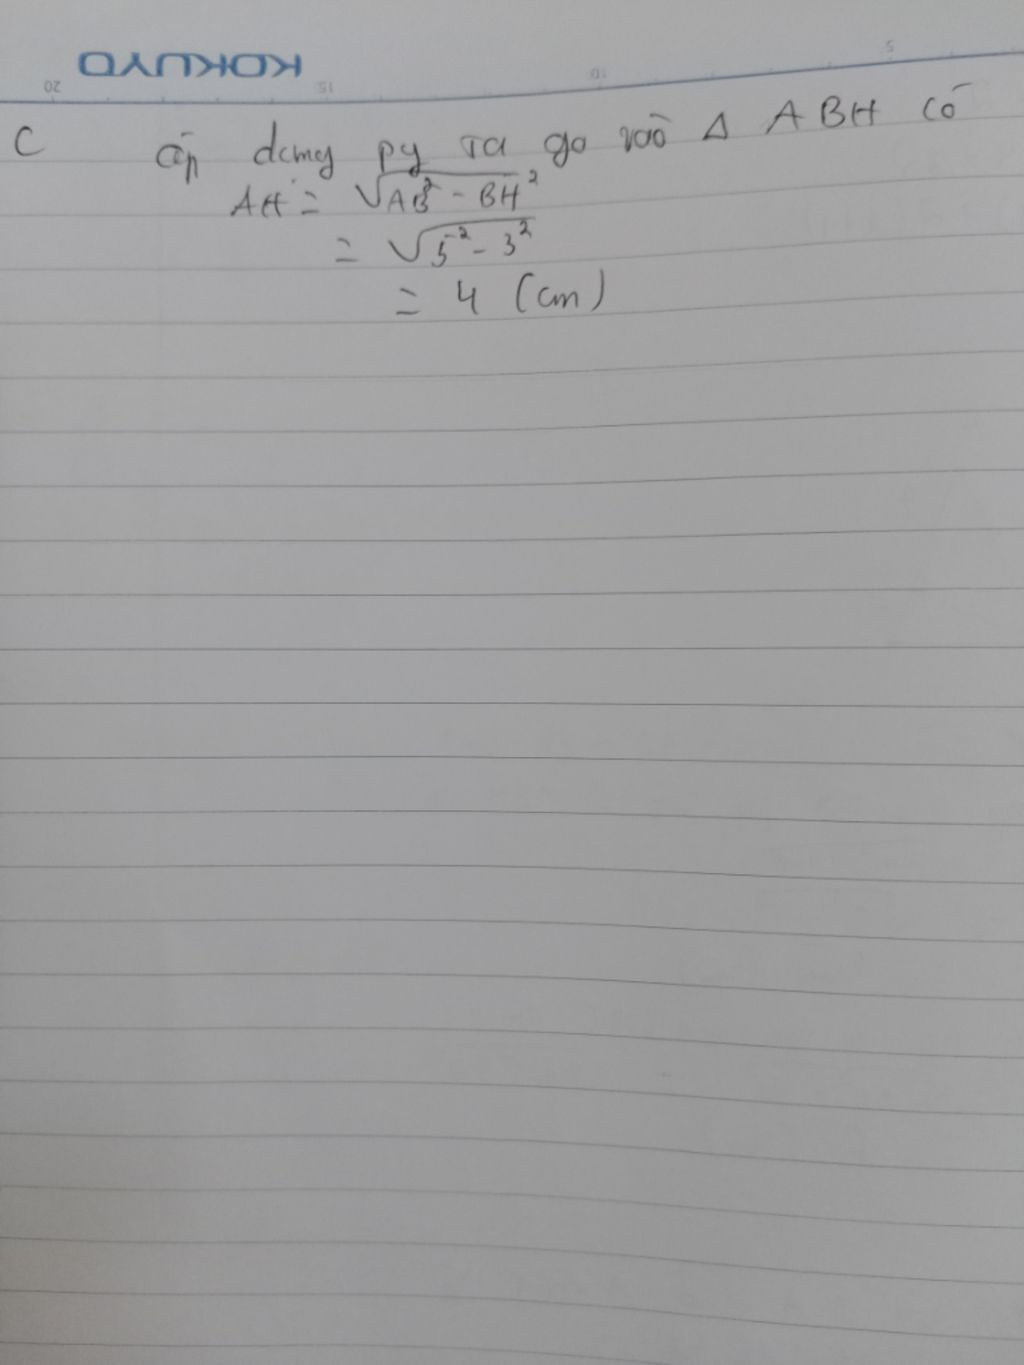 KOKUYO
20 15 10 5
C áp dụng py ta go vào Δ ABH có
AH = √AB² - BH²
= √5² - 3²
= 4 (cm)